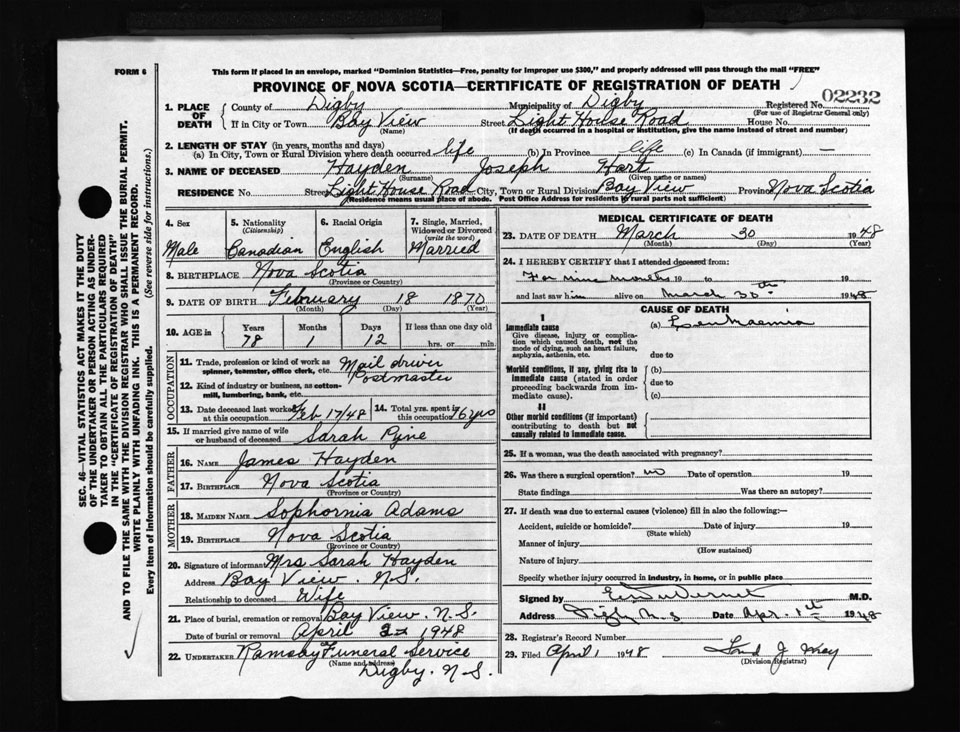 FORM 6
This form if placed in an envelope, marked "Dominion Statistics—Free, penalty for improper use $300," and properly addressed will pass through the mail "FREE"
PROVINCE OF NOVA SCOTIA—CERTIFICATE OF REGISTRATION OF DEATH
02232
1. PLACE OF DEATH
County of Digby Municipality of Digby Registered No.
(For use of Registrar General only)
If in City or Town Bay View Street Light House Road House No.
(Name) (If death occurred in a hospital or institution, give the name instead of street and number)
2. LENGTH OF STAY (in years, months and days)
(a) In City, Town or Rural Division where death occurred life (b) In Province life (c) In Canada (if immigrant) —
3. NAME OF DECEASED Hayden Joseph Hart
(Surname) (Given name or names)
RESIDENCE No. Street Light House Road City, Town or Rural Division Bay View Province Nova Scotia
(Residence means usual place of abode. Post Office Address for residents in rural parts not sufficient)
4. Sex
Male
5. Nationality
(Citizenship)
Canadian
6. Racial Origin
English
7. Single, Married, Widowed or Divorced
(write the word)
Married
8. BIRTHPLACE Nova Scotia
(Province or Country)
9. DATE OF BIRTH February 18 1870
(Month) (Day) (Year)
10. AGE in
Years Months Days If less than one day old
78 1 12 hrs. or min.
OCCUPATION
11. Trade, profession or kind of work as spinner, teamster, office clerk, etc. Mail driver
Postmaster
12. Kind of industry or business, as cotton-mill, lumbering, bank, etc.
13. Date deceased last worked at this occupation Feb 17/48
14. Total yrs. spent in this occupation 76 yrs
15. If married give name of wife or husband of deceased Sarah Pyne
FATHER
16. NAME James Hayden
17. BIRTHPLACE Nova Scotia
(Province or Country)
MOTHER
18. MAIDEN NAME Sophornia Adams
19. BIRTHPLACE Nova Scotia
(Province or Country)
20. Signature of informant Mrs Sarah Hayden
Address Bay View. N.S.
Relationship to deceased Wife
21. Place of burial, cremation or removal Bay View. N.S.
Date of burial or removal April 1948
22. UNDERTAKER Ramsay Funeral Service
(Name and address)
Digby. N.S.
MEDICAL CERTIFICATE OF DEATH
23. DATE OF DEATH March 30 1948
(Month) (Day) (Year)
24. I HEREBY CERTIFY that I attended deceased from:
For nine months 19 to 19
and last saw him alive on March 30th 1948
CAUSE OF DEATH
I
Immediate cause
Give disease, injury or complication which caused death, not the mode of dying, such as heart failure, asphyxia, asthenia, etc.
(a) Leukaemia
due to
Morbid conditions, if any, giving rise to immediate cause (stated in order proceeding backwards from immediate cause).
(b)
due to
(c)
II
Other morbid conditions (if important) contributing to death but not causally related to immediate cause.
25. If a woman, was the death associated with pregnancy?
26. Was there a surgical operation? no Date of operation 19
State findings Was there an autopsy?
27. If death was due to external causes (violence) fill in also the following:—
Accident, suicide or homicide? Date of injury 19
(State which)
Manner of injury
(How sustained)
Nature of injury
Specify whether injury occurred in industry, in home, or in public place
Signed by M.D.
Address Digby N.S Date Apr. 1st 1948
28. Registrar's Record Number
29. Filed April 1 1948
(Division Registrar)
SEC. 46—VITAL STATISTICS ACT MAKES IT THE DUTY
OF THE UNDERTAKER OR PERSON ACTING AS UNDER-
TAKER TO OBTAIN ALL THE PARTICULARS REQUIRED
IN THE "CERTIFICATE OF REGISTRATION OF DEATH"
AND TO FILE THE SAME WITH THE DIVISION REGISTRAR WHO SHALL ISSUE THE BURIAL PERMIT.
WRITE PLAINLY WITH UNFADING INK. THIS IS A PERMANENT RECORD.
Every item of information should be carefully supplied. (See reverse side for instructions.)